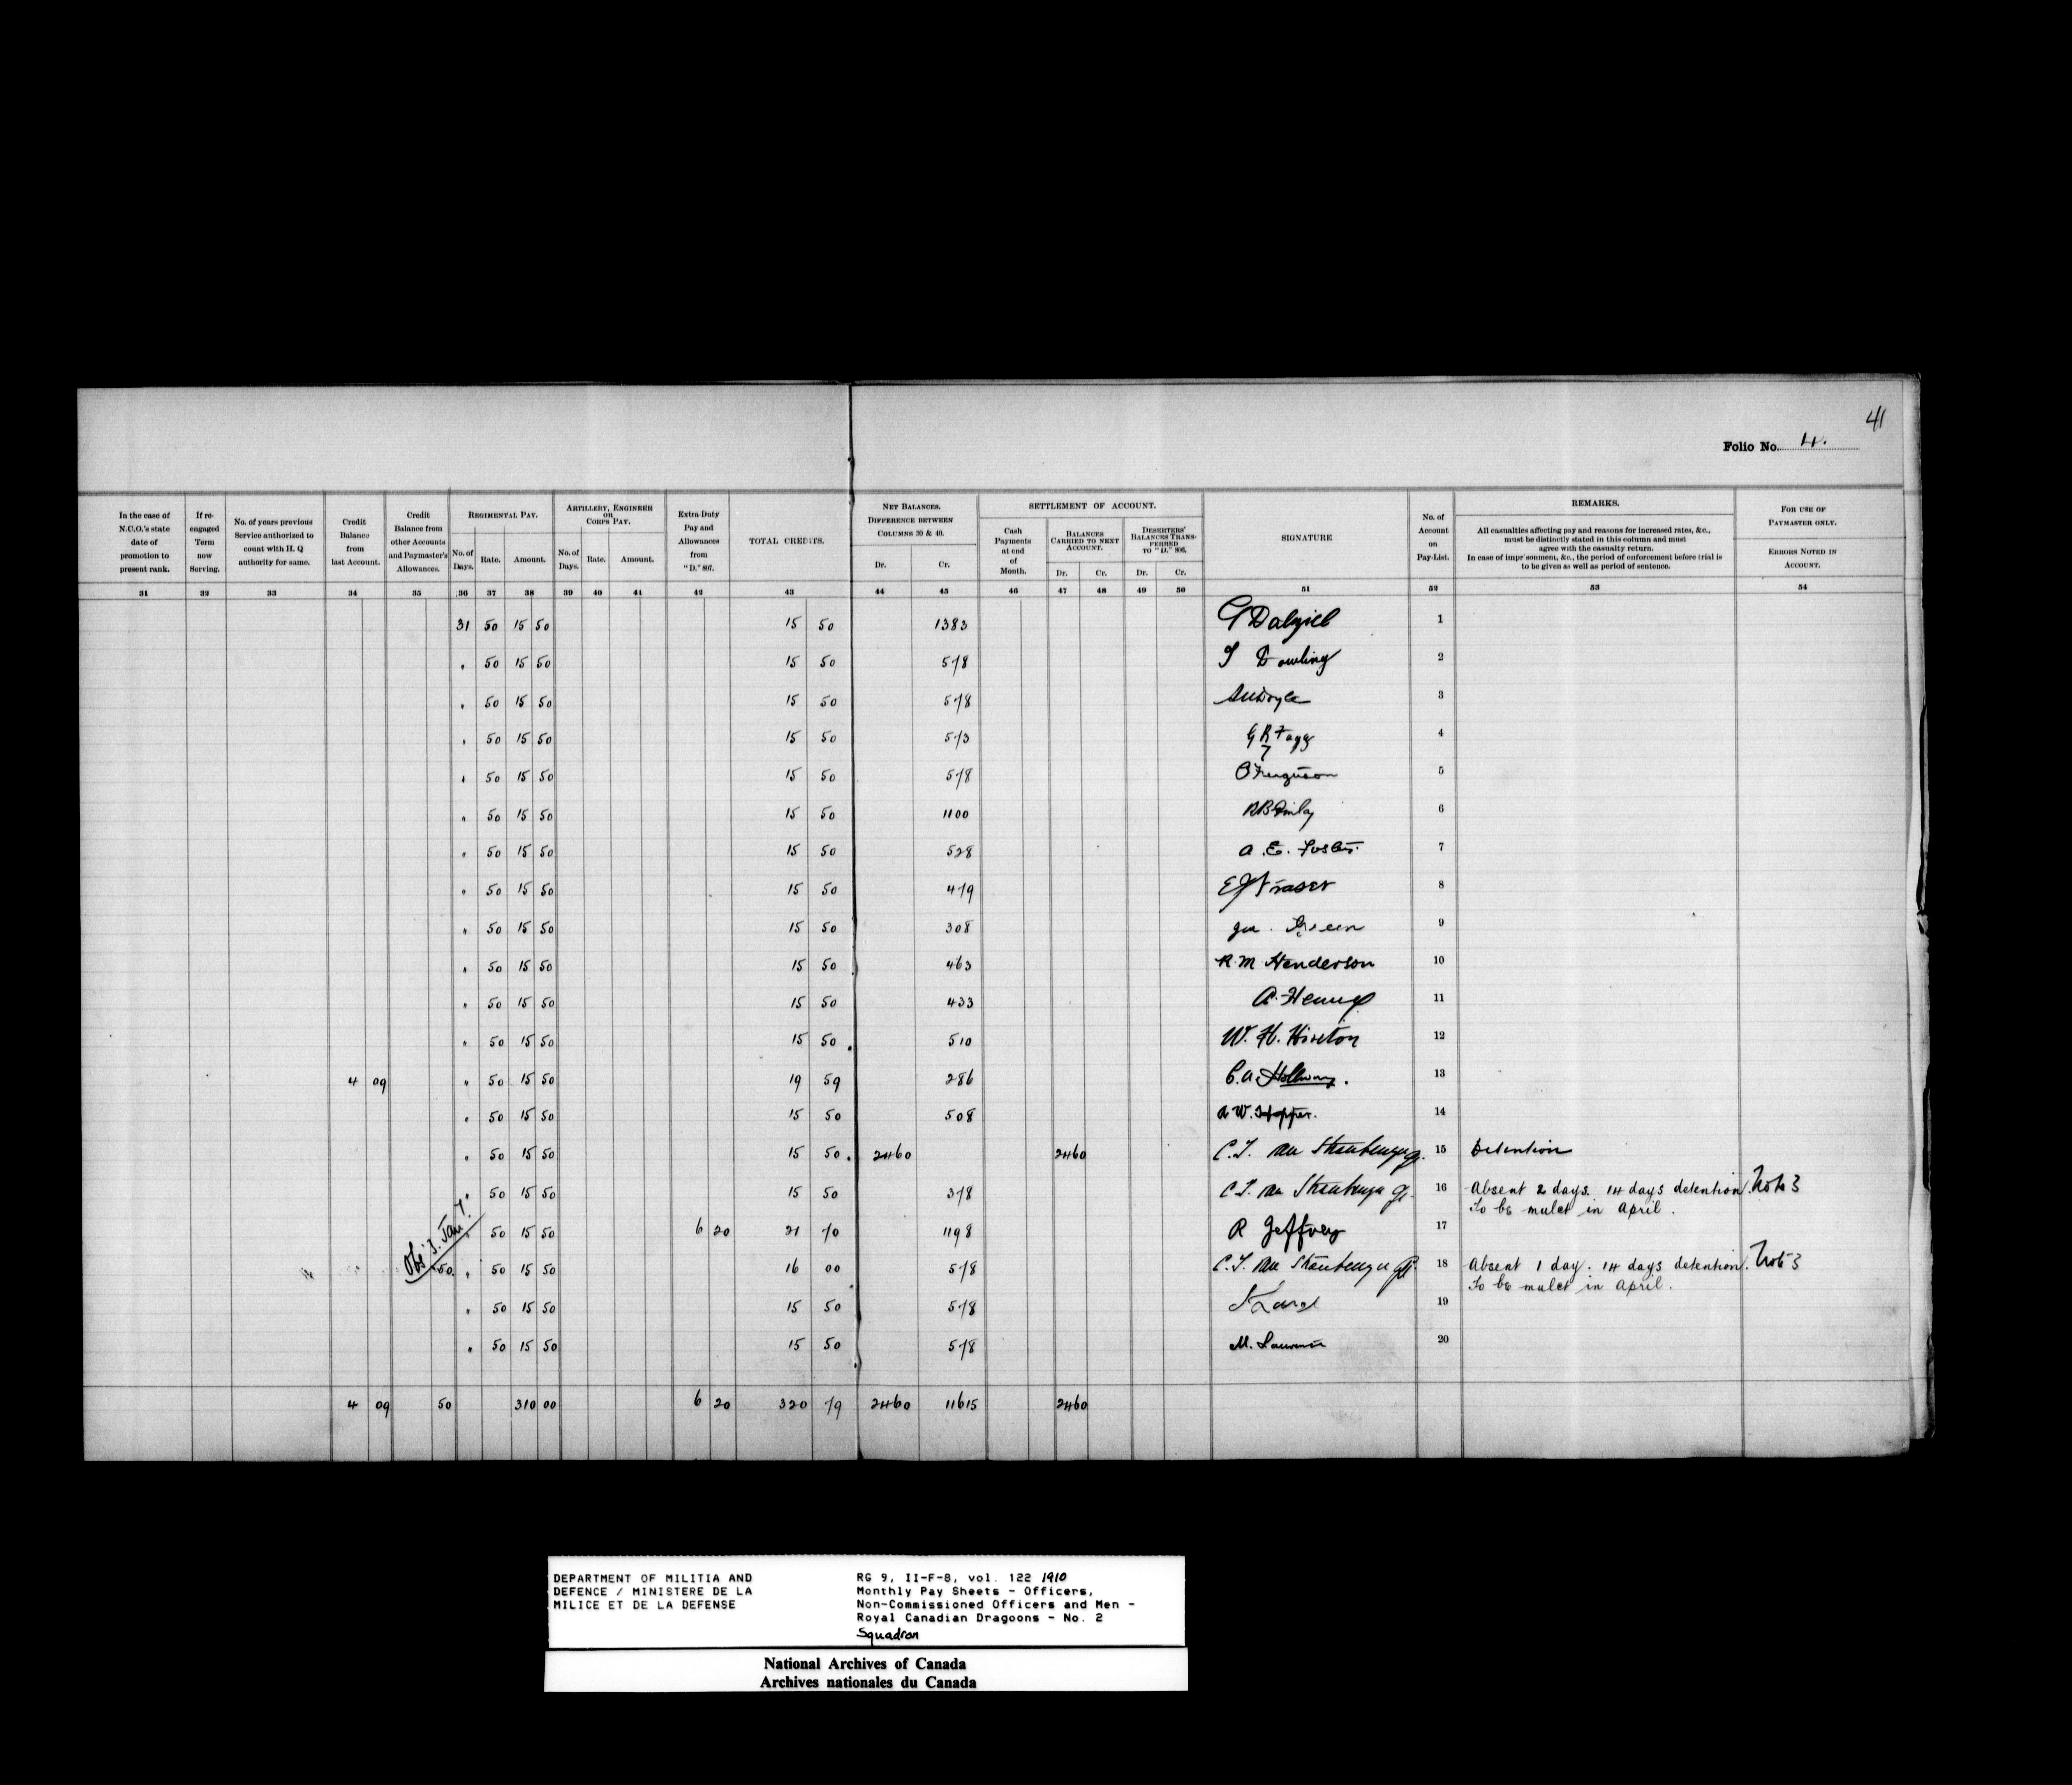 41
Folio No. 4.
In the case of N.C.O.'s state date of promotion to present rank.
If re-engaged Term now Serving.
No. of years previous Service authorized to count with H. Q authority for same.
Credit Balance from last Account.
Credit Balance from other Accounts and Paymaster's Allowances.
REGIMENTAL PAY.
No. of Days. Rate. Amount.
ARTILLERY, ENGINEER OR CORPS PAY.
No. of Days. Rate. Amount.
Extra Duty Pay and Allowances from "D." 807.
TOTAL CREDITS.
NET BALANCES. DIFFERENCE BETWEEN COLUMNS 30 & 40.
Dr. Cr.
SETTLEMENT OF ACCOUNT.
Cash Payments at end of Month.
BALANCES CARRIED TO NEXT ACCOUNT.
Dr. Cr.
DESERTERS' BALANCES TRANSFERRED TO "D." 806.
Dr. Cr.
SIGNATURE
No. of Account on Pay-List.
REMARKS.
All casualties affecting pay and reasons for increased rates, &c., must be distinctly stated in this column and must
agree with the casualty return.
In case of imprisonment, &c., the period of enforcement before trial is to be given as well as period of sentence.
FOR USE OF PAYMASTER ONLY.
ERRORS NOTED IN ACCOUNT.
31 32 33 34 35 36 37 38 39 40 41 42 43 44 45 46 47 48 49 50 51 52 53 54
31 50 15 50 15 50 1383 G Dalziel 1
" 50 15 50 15 50 578 J Dowling 2
" 50 15 50 15 50 578 3
" 50 15 50 15 50 573 G R Fagg 4
" 50 15 50 15 50 578 Ferguson 5
" 50 15 50 15 50 1100 6
" 50 15 50 15 50 528 A. E. Foster. 7
" 50 15 50 15 50 479 E J Fraser 8
" 50 15 50 15 50 308 Green 9
" 50 15 50 15 50 463 R. M Henderson 10
" 50 15 50 15 50 433 A. Henry 11
" 50 15 50 15 50 510 W. H. 12
4 09 " 50 15 50 19 59 286 C. A. 13
" 50 15 50 15 50 508 W. Hopper. 14
" 50 15 50 15 50 2460 2460 15 Detention
" 50 15 50 15 50 378 16 Absent 2 days. 14 days detention. Note 3
To be mulct in April.
" 50 15 50 6 20 21 70 1198 R Jeffrey 17
Obs. 3. Jan 7.
50 " 50 15 50 16 00 578 18 Absent 1 day. 14 days detention. Note 3
To be mulct in April.
" 50 15 50 15 50 578 19
" 50 15 50 15 50 578 M. Lawrence 20
4 09 50 310 00 6 20 320 79 2460 11615 2460
DEPARTMENT OF MILITIA AND
DEFENCE / MINISTERE DE LA
MILICE ET DE LA DEFENSE
RG 9, II-F-8, vol. 122 1910
Monthly Pay Sheets - Officers,
Non-Commissioned Officers and Men -
Royal Canadian Dragoons - No. 2
Squadron
National Archives of Canada
Archives nationales du Canada